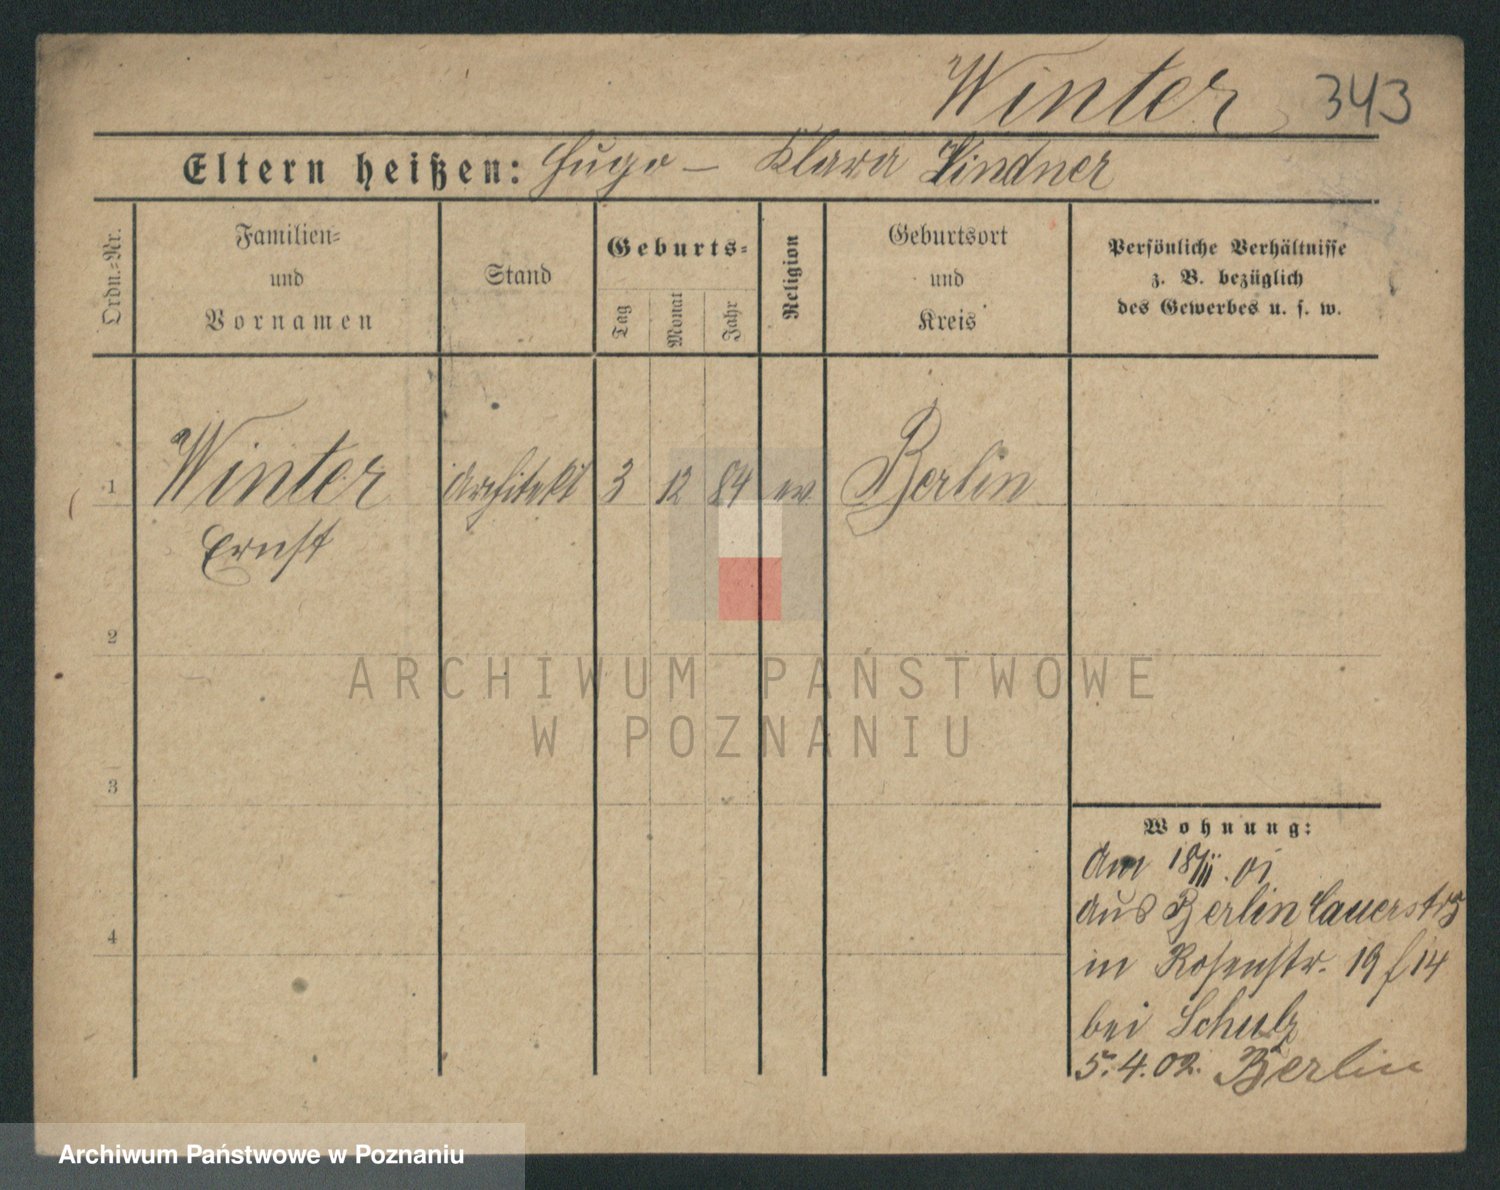 Winter 343
Eltern heißen: Hugo – Klara Lindner
Ordn.=Nr.
Familien=
und
Vornamen
Stand
Geburts=
Tag
Monat
Jahr
Religion
Geburtsort
und
Kreis
Persönliche Verhältnisse
z. B. bezüglich
des Gewerbes u. s. w.
1 Winter Architekt 3 12 84 ev Berlin
Ernst
2
3
4
ARCHIWUM PAŃSTWOWE
W POZNANIU
Wohnung:
Am 18/11. 01
aus Berlin
in Rosenstr. 19 14
bei Schulz
5.4.02. Berlin
Archiwum Państwowe w Poznaniu